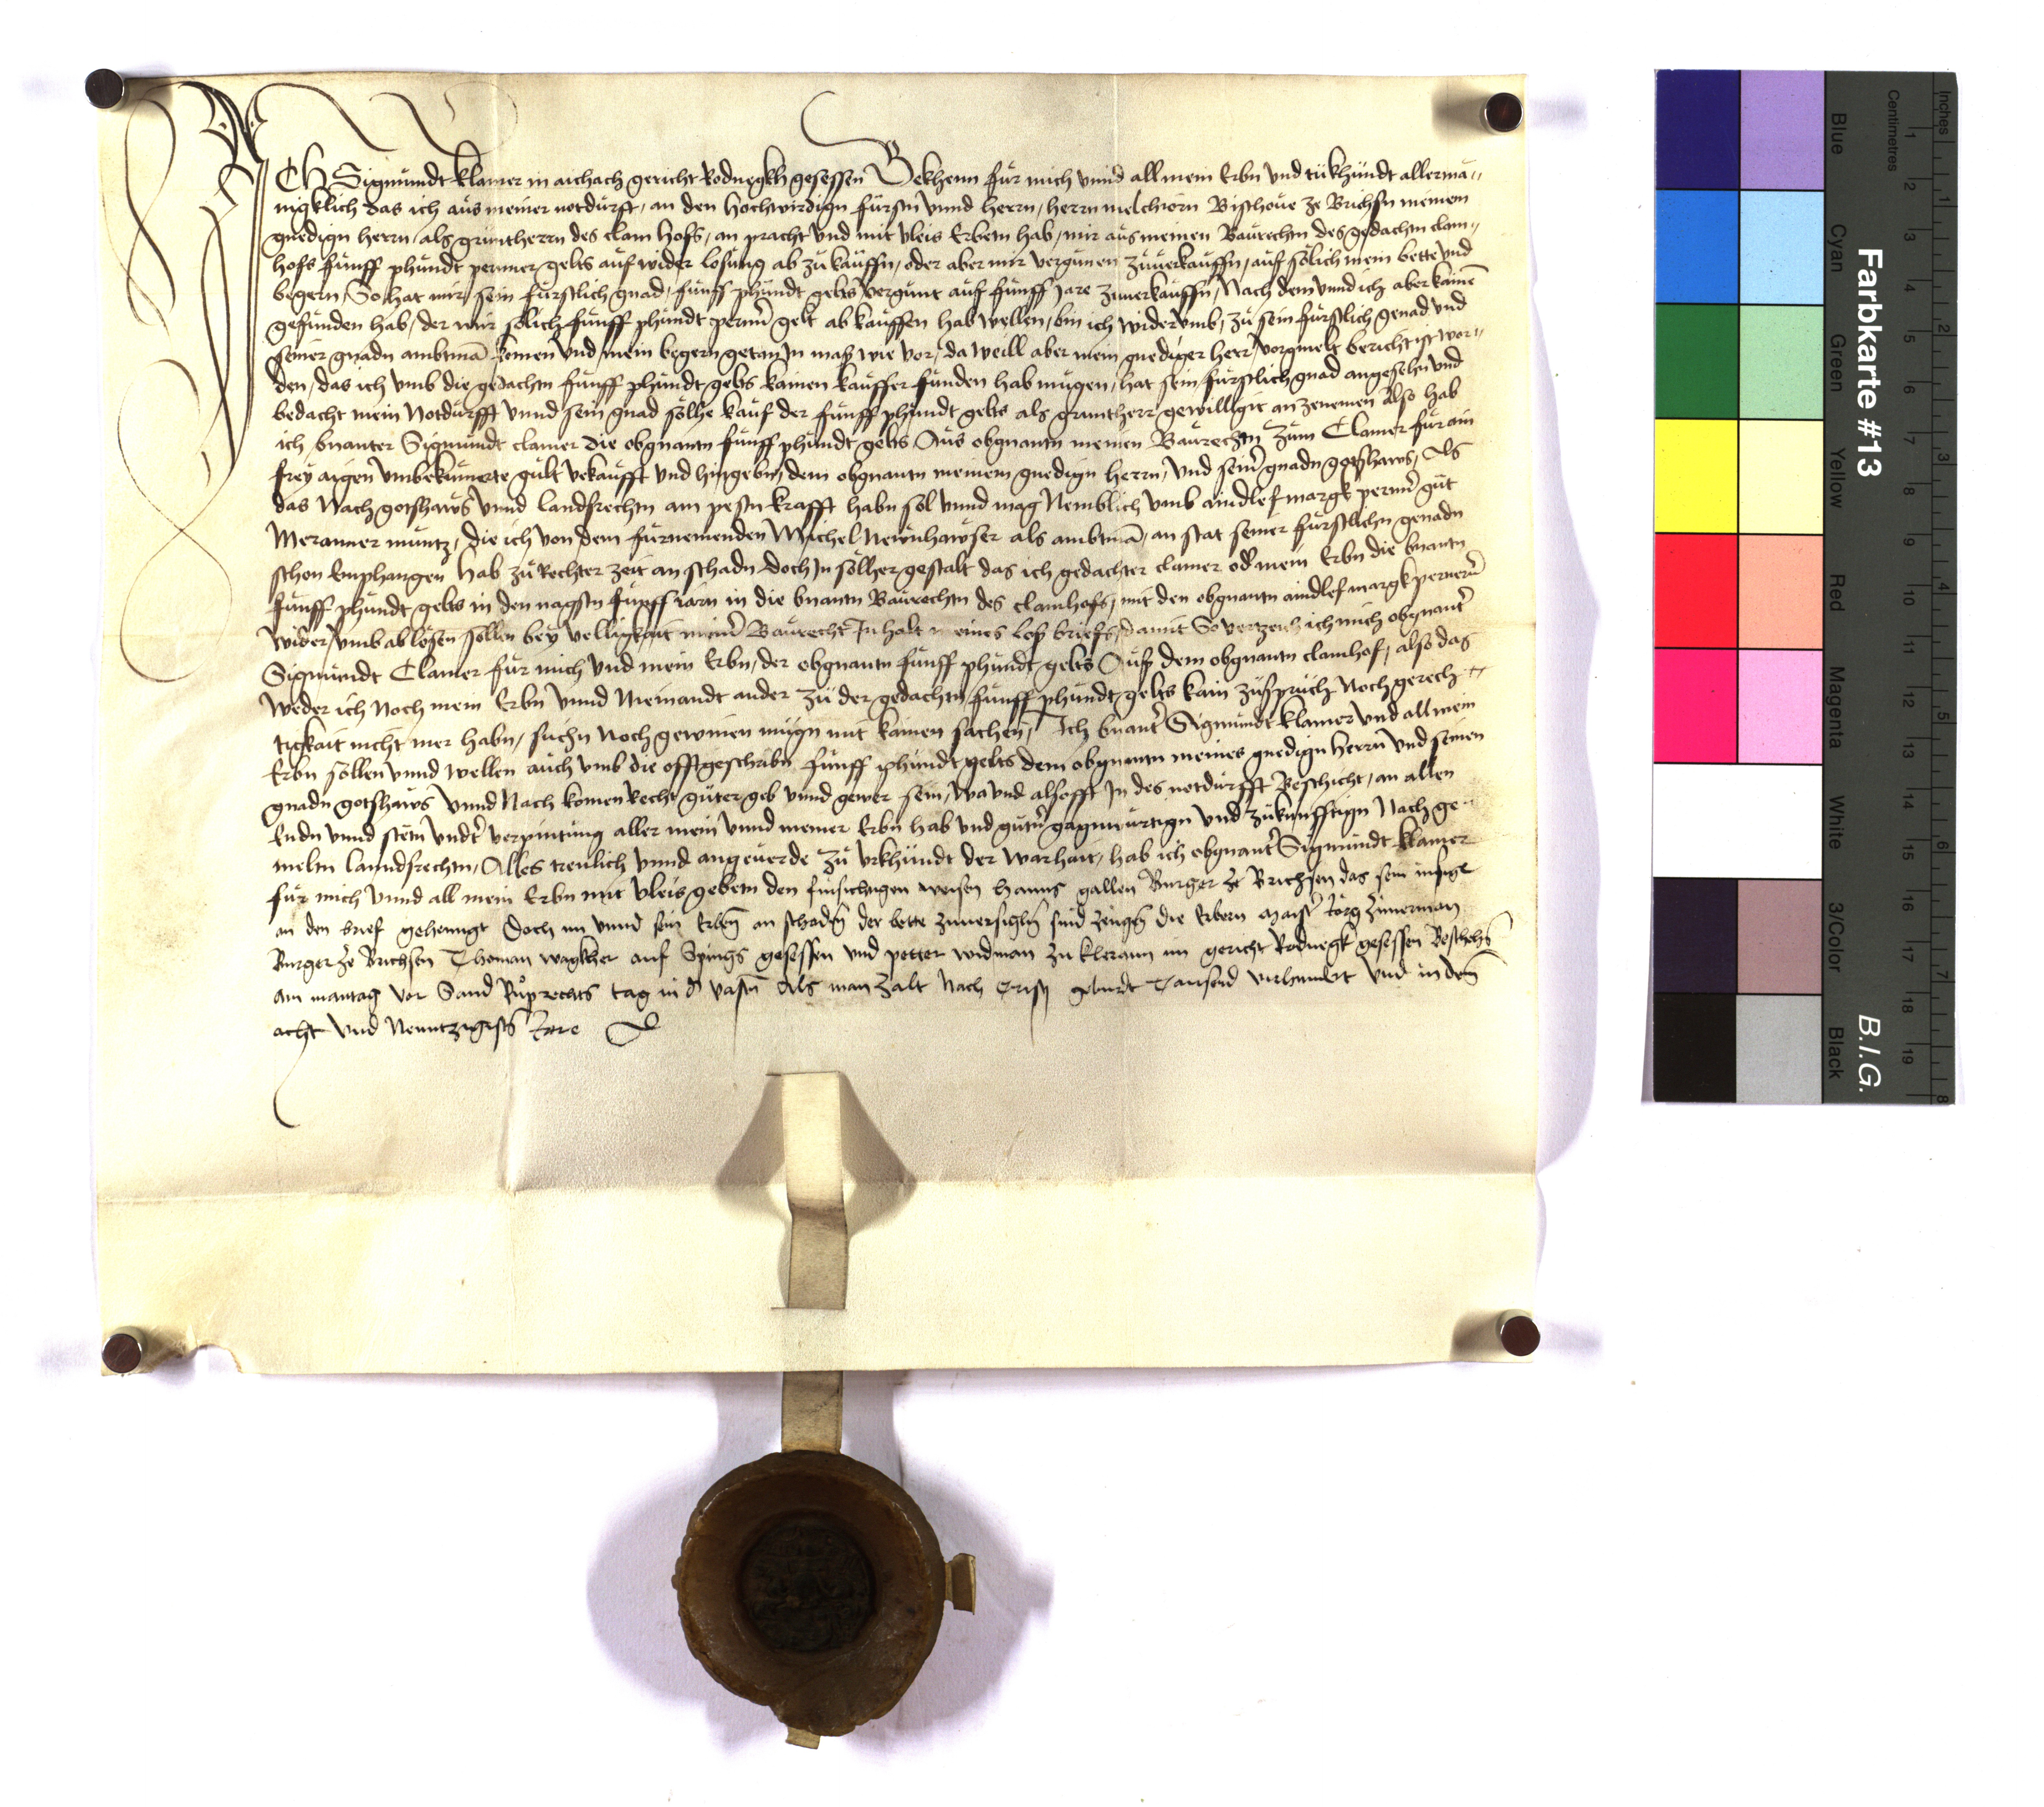 ICH Sigmundt Klamer in aichach gericht Rodnegkh gesessen Bekhenn für mich vnnd all mein Erbn vnd tükhündt allermä„
nigklich das ich aüs meiner notdürft, an den hochwirdign fürstn vnnd herrn, herrn melchiorn Bischoue ze Brichsn meinem
gnedign herrn, als gruntherrn des clam hofs, an pracht vnd mit vleis Erbetn hab, mir aüs meinen Baürechtn des gedachtn clam„
hofs fünff phündt perner gelts aüf wider losüng ab zü kaüffn, oder aber mir vergünen züuerkaüffn, aüf sölich mein bette vnd
begern, So hat mir sein fürstlich gnad, fünff phündt gelts vergünt aüf fünff Jare zuuerkaüffn, Nach dem vnnd ich aber kainē
gefünden hab, der mir sölich fünff phündt perner gelt ab kaüffen hab wellen, bin ich widervmb, zü sein fürstlich genad vnd
seiner gnadn ambtmā komen vnd mein begern getan In maß wie vor, da weill aber mein gnediger herr, vorgmelt bericht ist wor„
den, das ich vmb die gedachtn fünff phündt gelts kainen kaüffer fünden hab mügen, hat sein fürstlich gnad angesehn vnd
bedacht mein Notdürfft vnnd sein gnad sölhe kaüf der fünff phündt gelts als gruntherr gewilligit an zenemen Also hab
ich bnanter Sigmundt clamer die obgnantn fünff phündt gelts Aüs obgnantn meinen Baürechtn züm Clamer für ain
frey aigen vnbekümerte gült vekaüfft vnd hingebn, dem obgnantn meinem gnedign herrn, vnd seinr gnadn gotshaws, Als
das Nach gotshaws vnnd landsrechtn am pestn krafft habn sol vnnd mag Nemblich vmb aindlef margk perner güt
Meranner müntz, die ich von dem fürnemenden Michel Newnhawser als ambtmā, an stat seiner fürstlichn genadn
schon Emphangen hab zü Rechter zeit an schadn doch In sölher gestalt das ich gedachter clamer od mein Erbn die bnantn
fünff phündt gelts in den nagstn fünff iarn in die bnantn Baürechtn des clamhofs, mit den obgnantn aindlef margk pernern
wider vmb ablösen söllen bey velligkait meinr Baürecht Inhalt eines loß briefs, damit So vertzeich ich mich obgnantr
Sigmundt Clamer für mich vnd mein Erbn, der obgnantn fünff phündt gelts Aüß dem obgnantn clamhof, also das
weder ich Noch mein Erbn vnnd Niemandt ander zü der gedachtn fünff phündt gelts kain züsprüch Noch gerech„
tigkait nicht mer habn, süchn Noch gewinen mügn mit kainen sachen, Ich bnantr Sigmündt klamer vnd all mein
Erbn söllen vnnd wellen aüch vmb die offtgeschribn fünff phündt gelts dem obgnantn meines gnedign herrn vnd seinen
gnadn gotshaws vnnd Nach komen Recht güter geb vnnd gewer sein, wa vnd alsofft In des notdürfft Beschicht, an allen
Endn vnnd stetn vndtr verpintüng aller mein vnnd meiner Erbn hab vnd gütr gagnwürtign vnd zükünfftign Nach ge„
melm lanndsrechtn, Alles treulich vnnd angeuerde zü vrkhündt der warhait, hab ich obgnantr Sigmundt klamer
für mich vnnd all mein Erbn mit vleis gebetn den fürsichtigen weisen hanns gallen Burger ze Brichsen das sein insigel
an den brief gehenngt Doch im vnnd sein Erbn an schadn der bette zuuersigln sind zeugn die Erbern maistr Jörg Zimerman
Burger ze Brichsen Thoman wagkher auf Spings gesessen vnd petter widman zu klerann im gericht Rodnegk gesessen Beschehs
am mantag vor Sand Rüprechts tag in d vastn Als man zalt Nach Cristj geburdt Tausend virhundert vnd in dem
acht vnd Newntzigistn Jare
Farbkarte #13
B.I.G.
Inches
Centimetres
Blue
Cyan
Green
Yellow
Red
Magenta
White
3/Color
Black
1
2
3
4
5
6
7
8
9
10
11
12
13
14
15
16
17
18
19
1
2
3
4
5
6
7
8